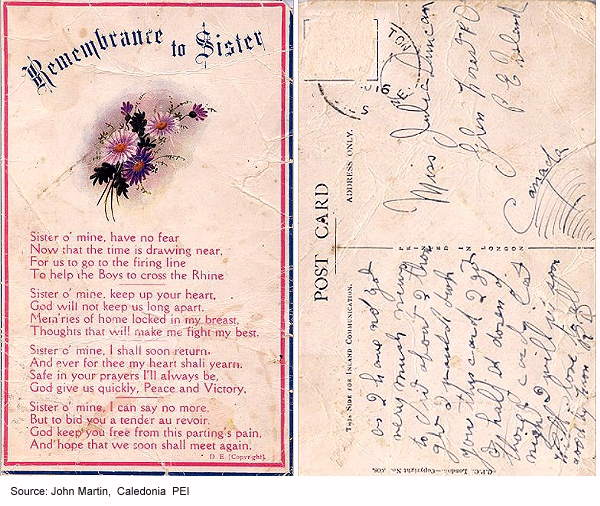 Remembrance to Sister
Sister o' mine, have no fear
Now that the time is drawing near,
For us to go to the firing line
To help the Boys to cross the Rhine
Sister o' mine, keep up your heart,
God will not keep us long apart,
Mem'ries of home locked in my breast,
Thoughts that will make me fight my best.
Sister o' mine, I shall soon return,
And ever for thee my heart shall yearn,
Safe in your prayers I'll always be,
God give us quickly, Peace and Victory.
Sister o' mine, I can say no more,
But to bid you a tender au revoir,
God keep you free from this parting's pain,
And hope that we soon shall meet again.
D. E. [Copyright].
POST CARD
ADDRESS ONLY.
THIS SIDE FOR INLAND COMMUNICATION.
PRINTED IN LONDON
Miss Julia Duncan
Glen
P E Island
Canada
as I have no got
very much news
to I
I would
you this card I got
half a dozen of
those cards last
night I will
with love
Source: John Martin, Caledonia PEI